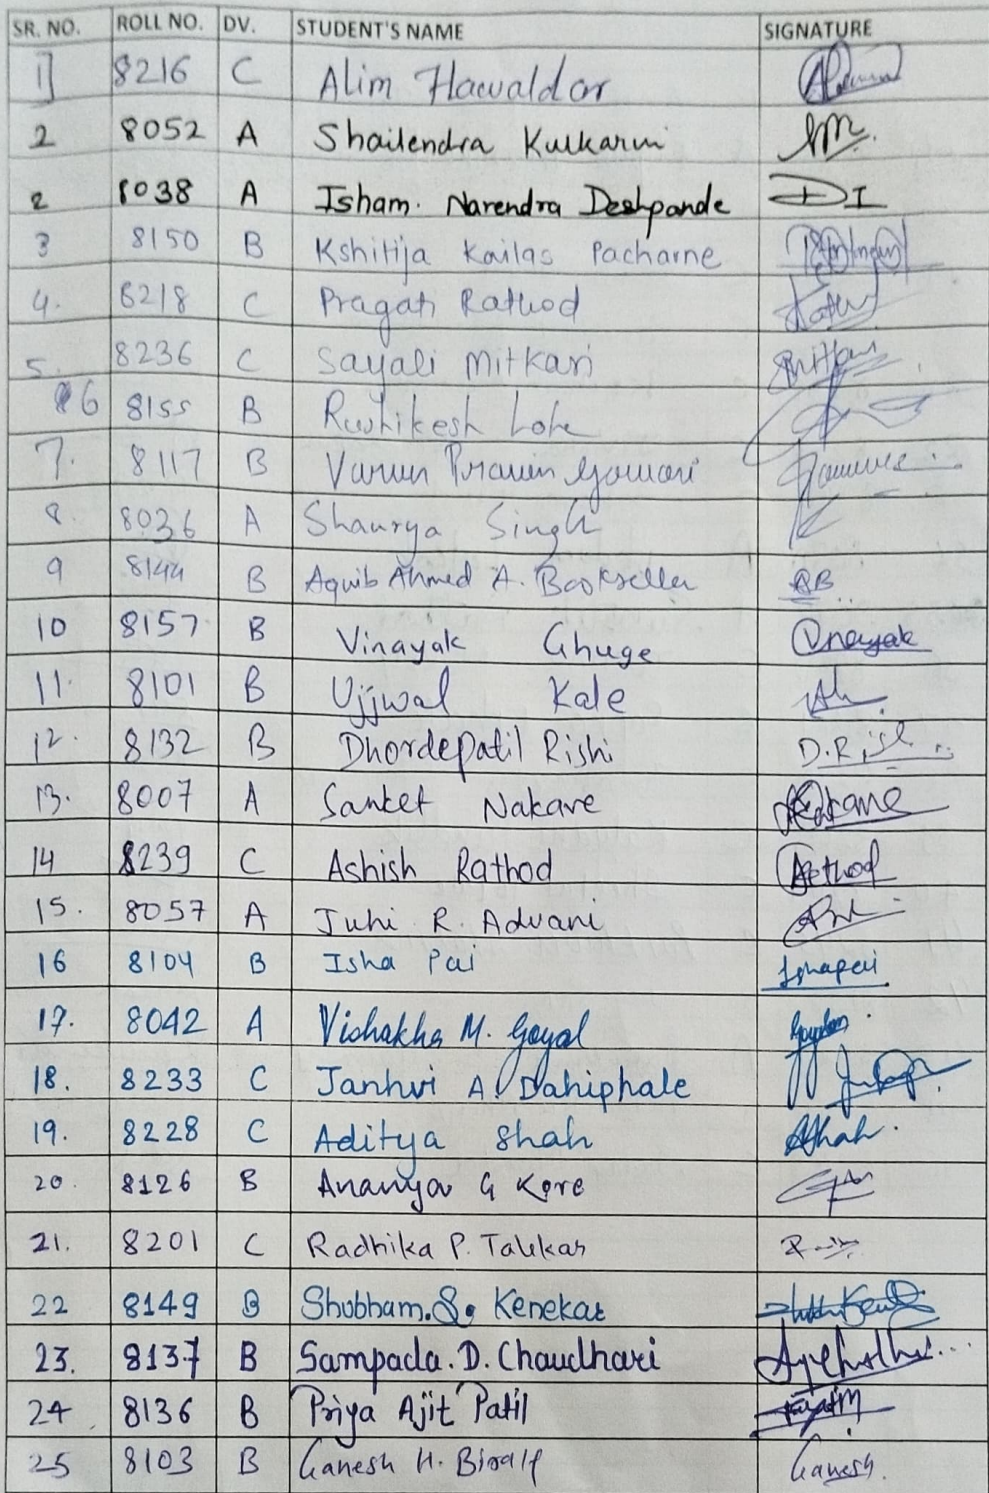 SR. NO. ROLL NO. DV. STUDENT'S NAME SIGNATURE
1] 8216 C Alim Hawaldar
2 8052 A Shailendra Kulkarni
2 8038 A Isham. Narendra Deshpande DI
3 8150 B Kshitija Kailas Pacharne
4. 8218 C Pragati Rathod
5. 8236 C Sayali Mitkari
6 8155 B Rushikesh
7. 8117 B Varun Pravin
8. 8036 A Shaurya Singh
9 8144 B Aquib Ahmed A. Bookseller AB
10 8157 B Vinayak Ghuge Vinayak
11. 8101 B Ujjwal Kale
12. 8132 B Dhordepatil Rishi D.Rishi
13. 8007 A Sanket Nakave
14 8239 C Ashish Rathod
15. 8057 A Juhi R. Advani
16 8104 B Isha Pai Ishapai
17. 8042 A Vishakha M. Goyal
18. 8233 C Janhvi A. Dahiphale
19. 8228 C Aditya Shah AShah.
20. 8126 B Ananya G Kore
21. 8201 C Radhika P. Talekar
22 8149 B Shubham.S. Kenekar
23. 8137 B Sampada. D. Chaudhari
24 8136 B Priya Ajit Patil
25 8103 B Ganesh H. Ganesh.